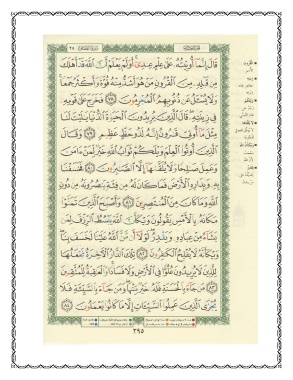 قَالَ إِنَّمَا أُوتِيتُهُۥ عَلَىٰ عِلْمٍ عِندِىٓ أَوَلَمْ يَعْلَمْ أَنَّ ٱللَّهَ قَدْ أَهْلَكَ
مِن قَبْلِهِۦ مِنَ ٱلْقُرُونِ مَنْ هُوَ أَشَدُّ مِنْهُ قُوَّةً وَأَكْثَرُ جَمْعًا
وَلَا يُسْـَٔلُ عَن ذُنُوبِهِمُ ٱلْمُجْرِمُونَ ٧٨ فَخَرَجَ عَلَىٰ قَوْمِهِۦ
فِى زِينَتِهِۦ قَالَ ٱلَّذِينَ يُرِيدُونَ ٱلْحَيَوٰةَ ٱلدُّنْيَا يَٰلَيْتَ لَنَا
مِثْلَ مَآ أُوتِىَ قَٰرُونُ إِنَّهُۥ لَذُو حَظٍّ عَظِيمٍ ٧٩ وَقَالَ
ٱلَّذِينَ أُوتُوا۟ ٱلْعِلْمَ وَيْلَكُمْ ثَوَابُ ٱللَّهِ خَيْرٌ لِّمَنْ ءَامَنَ
وَعَمِلَ صَٰلِحًا وَلَا يُلَقَّىٰهَآ إِلَّا ٱلصَّٰبِرُونَ ٨٠ فَخَسَفْنَا
بِهِۦ وَبِدَارِهِ ٱلْأَرْضَ فَمَا كَانَ لَهُۥ مِن فِئَةٍ يَنصُرُونَهُۥ مِن دُونِ
ٱللَّهِ وَمَا كَانَ مِنَ ٱلْمُنتَصِرِينَ ٨١ وَأَصْبَحَ ٱلَّذِينَ تَمَنَّوْا۟
مَكَانَهُۥ بِٱلْأَمْسِ يَقُولُونَ وَيْكَأَنَّ ٱللَّهَ يَبْسُطُ ٱلرِّزْقَ لِمَن
يَشَآءُ مِنْ عِبَادِهِۦ وَيَقْدِرُ لَوْلَآ أَن مَّنَّ ٱللَّهُ عَلَيْنَا لَخَسَفَ بِنَا
وَيْكَأَنَّهُۥ لَا يُفْلِحُ ٱلْكَٰفِرُونَ ٨٢ تِلْكَ ٱلدَّارُ ٱلْـَٔاخِرَةُ نَجْعَلُهَا
لِلَّذِينَ لَا يُرِيدُونَ عُلُوًّا فِى ٱلْأَرْضِ وَلَا فَسَادًا وَٱلْعَٰقِبَةُ لِلْمُتَّقِينَ
٨٣ مَن جَآءَ بِٱلْحَسَنَةِ فَلَهُۥ خَيْرٌ مِّنْهَا وَمَن جَآءَ بِٱلسَّيِّئَةِ فَلَا
يُجْزَى ٱلَّذِينَ عَمِلُوا۟ ٱلسَّيِّـَٔاتِ إِلَّا مَا كَانُوا۟ يَعْمَلُونَ ٨٤
٣٩٥